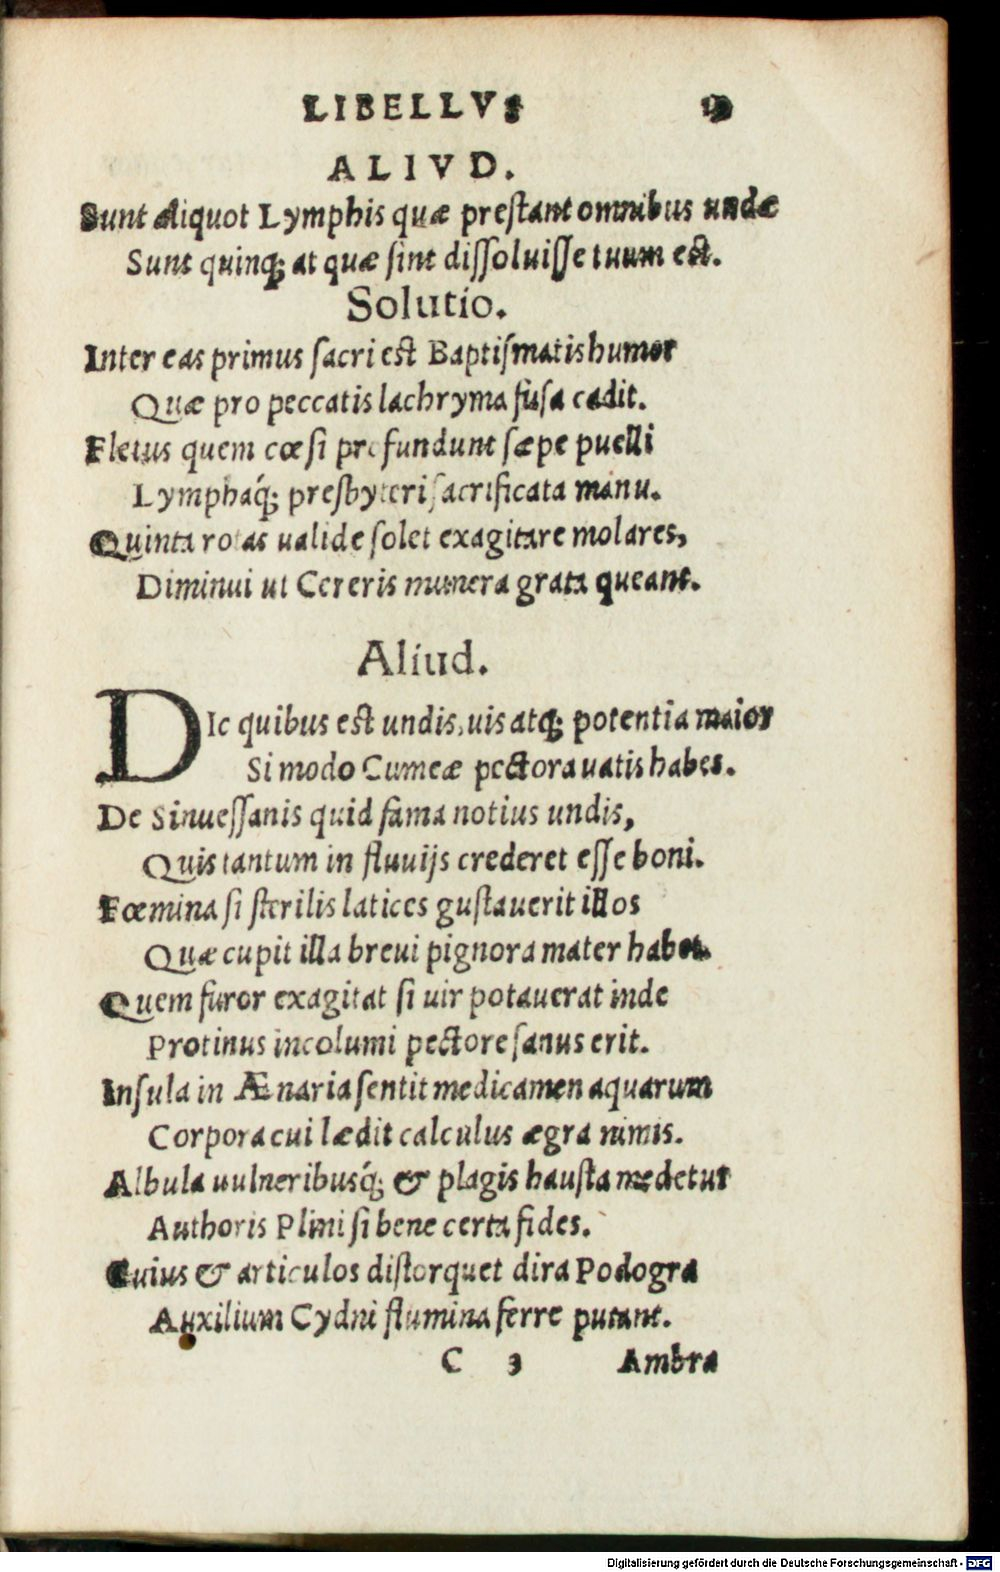 LIBELLVS
ALIVD.
Sunt aliquot Lymphis quæ prestant omnibus undæ
Sunt quinq; at quæ sint dissoluisse tuum est.
Solutio.
Inter eas primus sacri est Baptismatis humor
Quæ pro peccatis lachryma fusa cadit.
Fletus quem cœsi profundunt sæpe puelli
Lymphaq́; presbyteri sacrificata manu.
Quinta rotas ualide solet exagitare molares,
Diminui ut Cereris munera grata queant.
Aliud.
DIc quibus est undis, uis atq; potentia maior
Si modo Cumeæ pectora uatis habes.
De Sinuessanis quid fama notius undis,
Quis tantum in fluuijs crederet esse boni.
Fœmina si sterilis latices gustauerit illos
Quæ cupit illa breui pignora mater habet.
Quem furor exagitat si uir potauerat inde
Protinus incolumi pectore sanus erit.
Insula in Ænaria sentit medicamen aquarum
Corpora cui lædit calculus ægra nimis.
Albula uulneribusq́; & plagis hausta medetur
Authoris Plini si bene certa fides.
Cuius & articulos distorquet dira Podogra
Auxilium Cydni flumina ferre putant.
C 3 Ambra
Digitalisierung gefördert durch die Deutsche Forschungsgemeinschaft - DFG